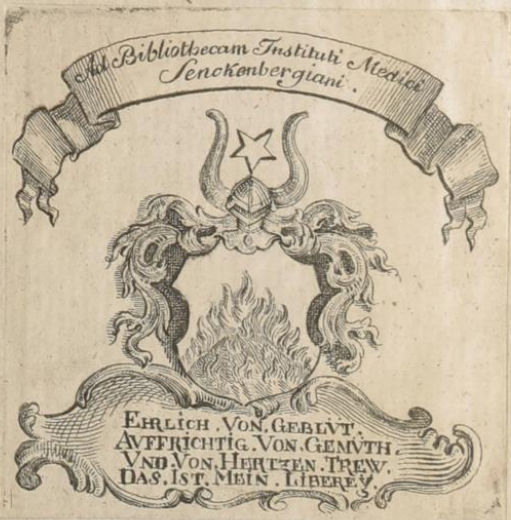 Ad Bibliothecam Instituti Medici
Senckenbergiani.
EHRLICH. VON. GEBLÜT.
AVFFRICHTIG. VON. GEMÜTH.
VND. VON. HERTZEN. TREW.
DAS. IST. MEIN. LIBEREY.